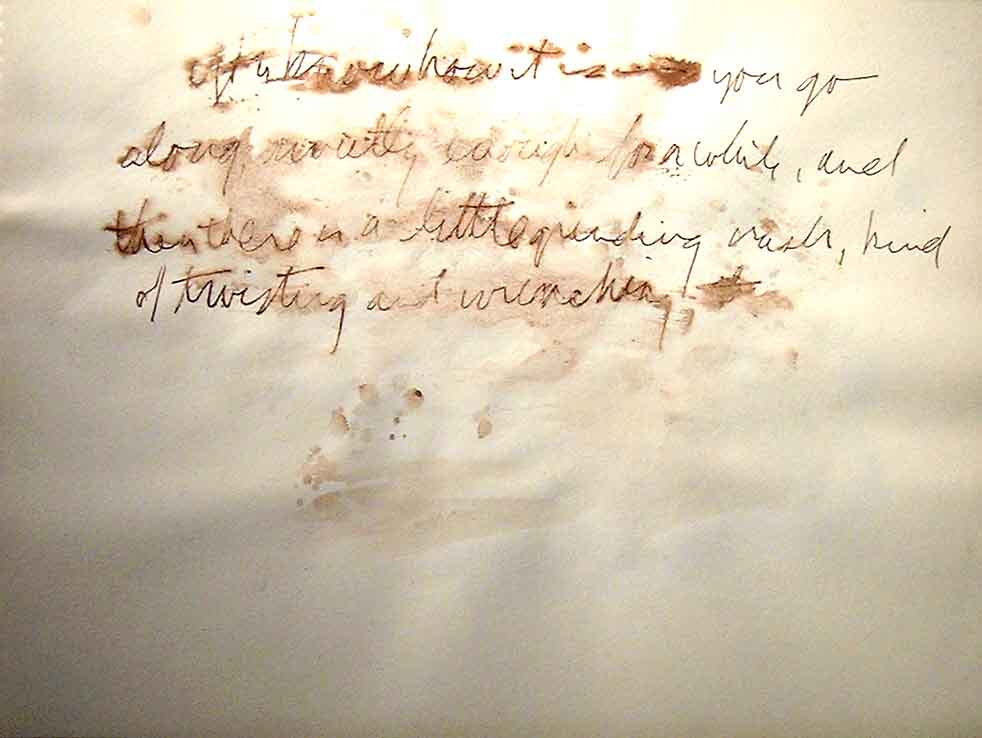 know how it is you go
along enough for a while, and
then there is a little grinding crash, kind
of twisting and wrenching,